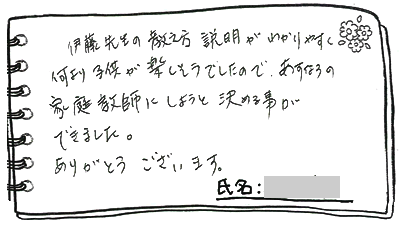 伊藤先生の教え方 説明がわかりやすく
何より子供が楽しそうでしたので、あすなろの
家庭教師にしようと決める事が
できました。
ありがとう ございます。
氏名: